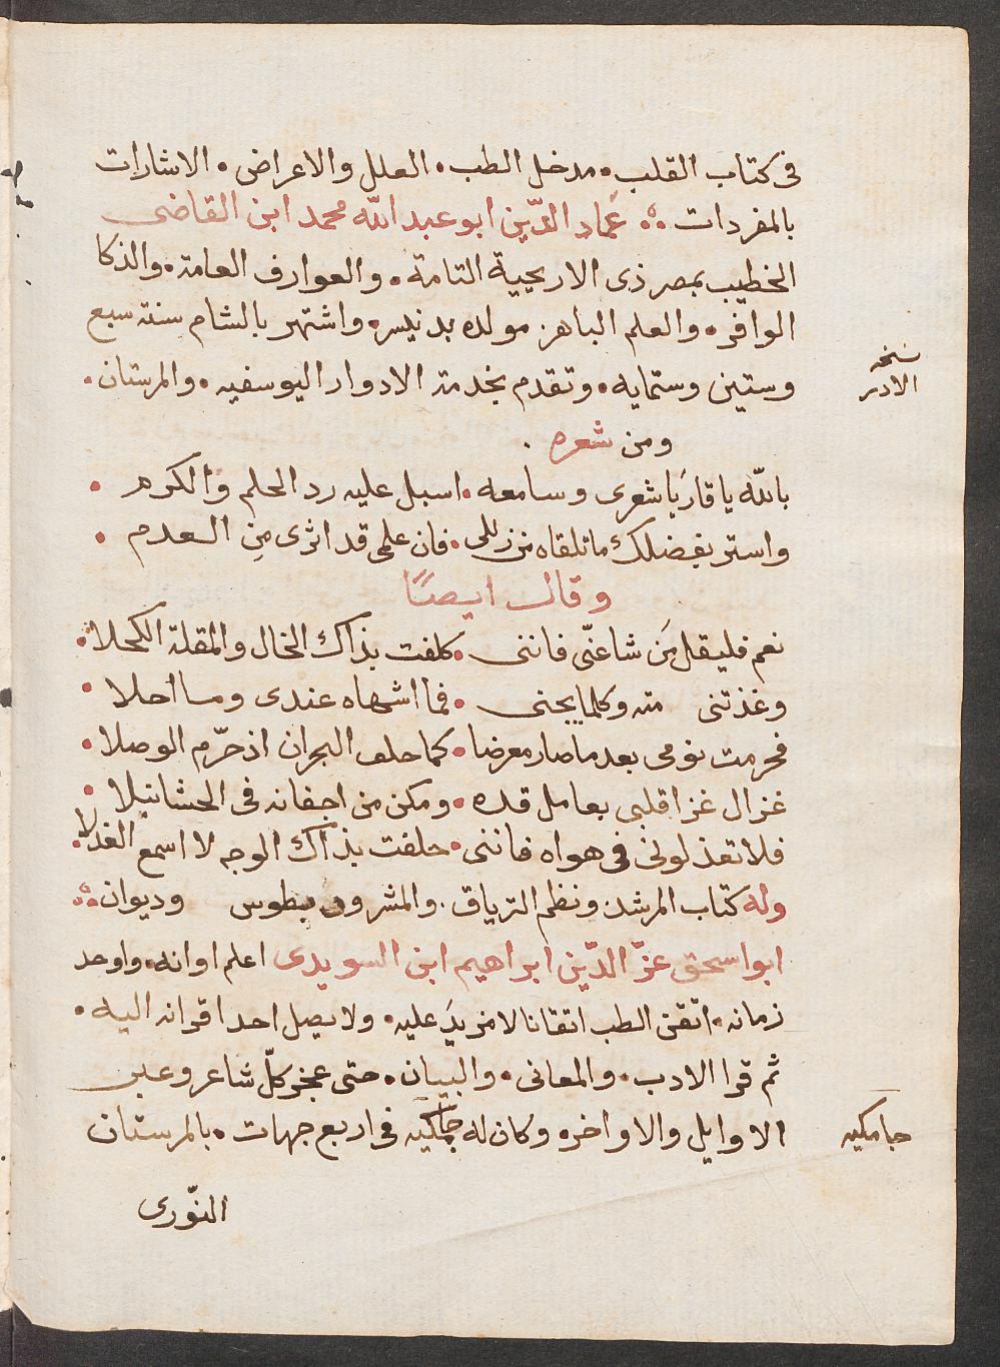 فى كتاب القلب • مدخل الطب • العلل والاعراض • الاشارات
بالمفردات ؞ عَماد الدّين ابو عبد الله محمد ابن القاضى
الخطيب بمصر ذى الاريحية التامة • والعوارف العامة • والذكا
الوافر • والعلم الباهر. مولده بدنيسر • واشتهر بالشام سنة سبع
وستين وستمايه • وتقدم بخدمة الادوار اليوسفيه • والمرستان •
نسخه
الادر
ومن شعره .
بالله يا قارَيا شعرى وسامعه • اسبل عليه رد الحلم والكرم •
واستر بفضلك ما تلقاه من زللى • فان علمى قد اثرى مِن العدم •
وقال ايضًا
نعم فليقل مَن شا عنّى فاننى • كلفت بذاك الخال والمقلة الكحلا •
وغذتنى منه وكلما يجنى • فما اشهاه عندى وما احلا •
فحرمت نومى بعد ما صار معرضا • كما حلف الهجران اذ حرّم الوصلا •
غزال غزا قلبى بعامل قده • ومكن من اجفانه فى الحشا نبلا •
فلا تعذلونى فى هواه فاننى • حلفت بذاك الوجه لا اسمع العذلا •
وله كتاب المرشد ونظم الترياق . والمشرودبطوس وديوان ؞
ابو اسحق عزّ الدّين ابراهيم ابن السويدى اعلم اوانه • واوحد
زمانه • اتقن الطب اتقانا لا مزيدَ عليه • ولا يصل احد اقرانه اليه •
ثم قرا الادب • والمعانى • والبيان • حتى عجز كلّ شاعر وعبر
الاوايل والاواخره وكان له جامكيه فى اربع جهات • بالمرستان
جامكيه
النّورى